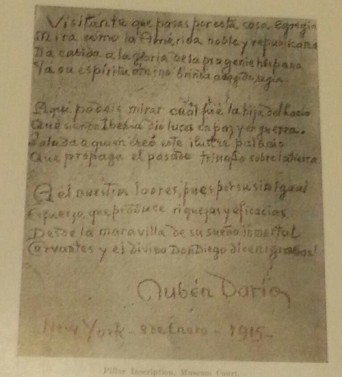 Visitante que pasas por esta casa egregia
Mira como la América noble y republicana
Da cabida a la gloria de la progenie hispana
Y a su espíritu eterno brinda acogida regia.
Aquí podéis mirar cual fue la hija del Lacio
Que como Iberia dio luces en paz y en guerra.
Saluda a quien creó este ilustre palacio
Que propaga el pasado triunfo sobre la tierra
A él nuestros loores, pues por su sin igual
Esfuerzo, que produce riquezas y eficacias,
Desde la maravilla de su sueño inmortal
Cervantes y el divino Don Diego dicen gracias!
Rubén Darío
New York - 8 de Enero - 1915.
Pillar Inscription, Museum Court.